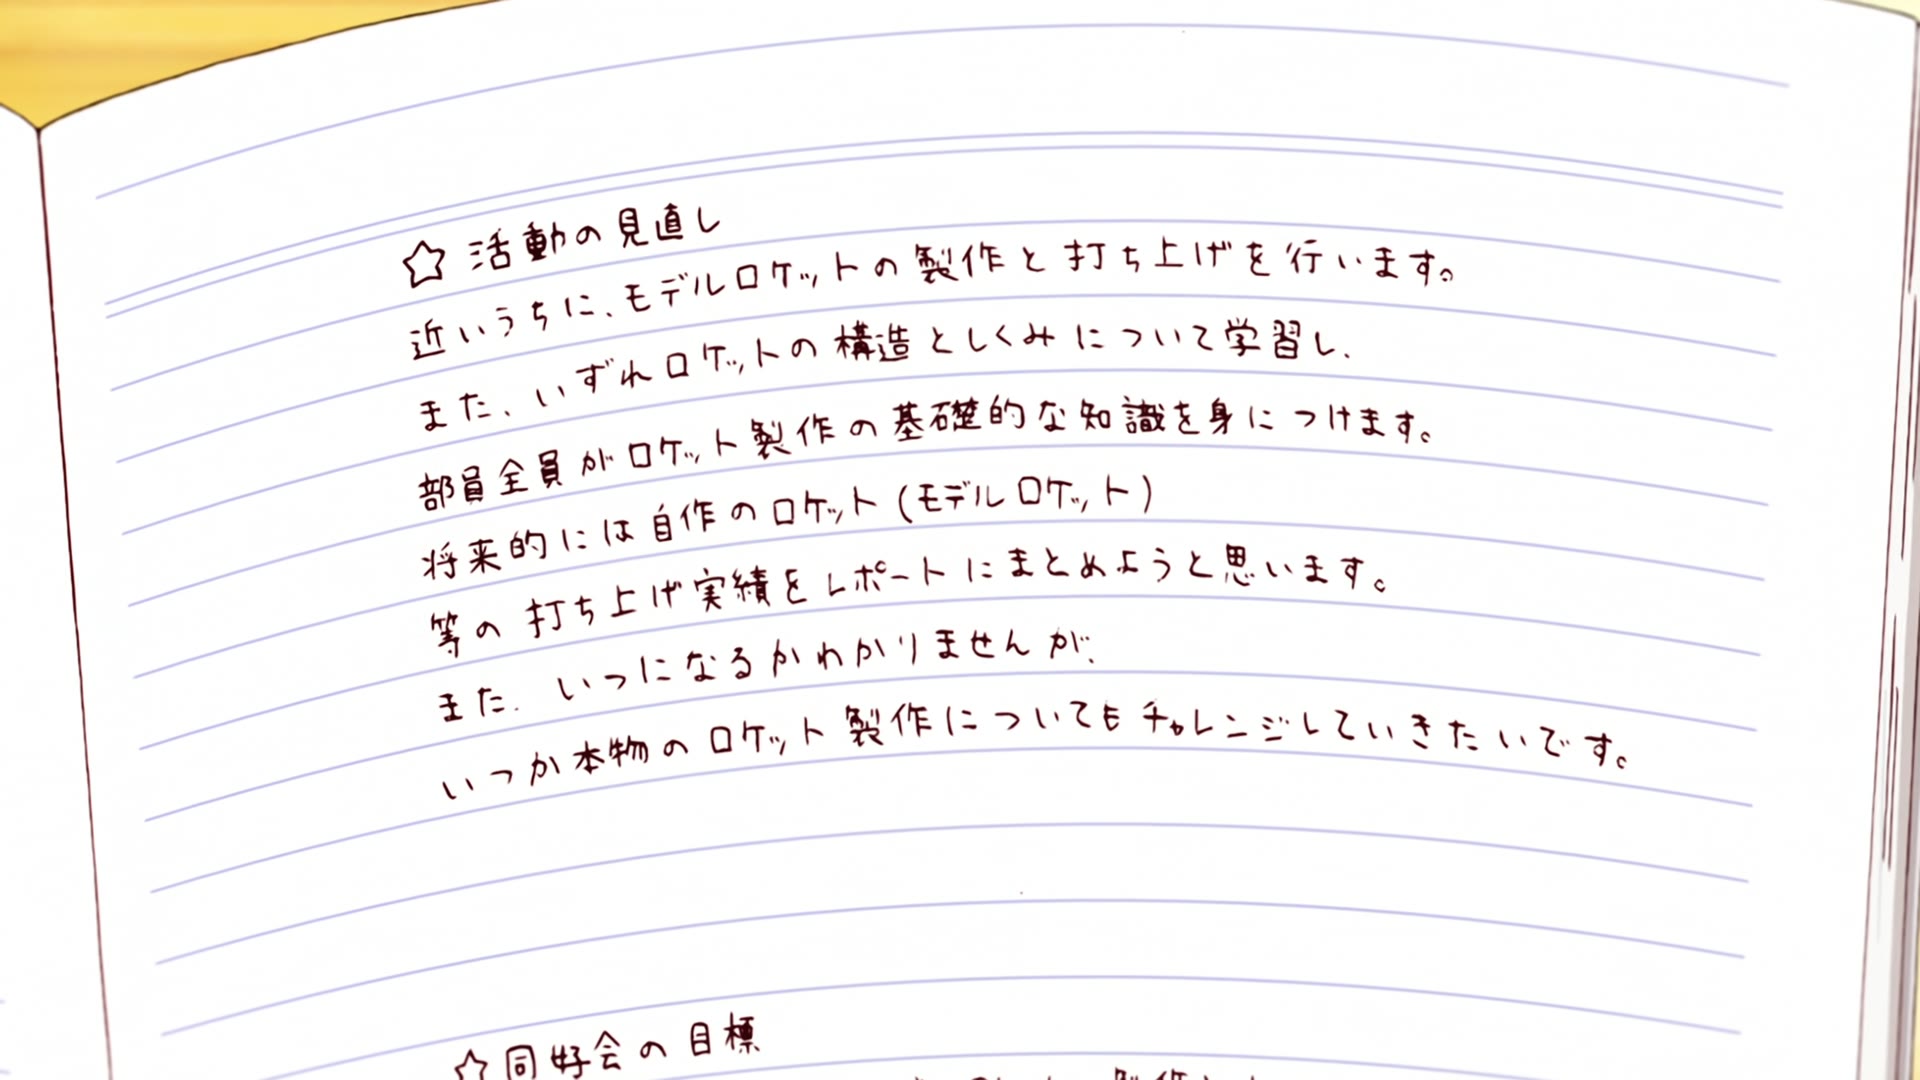 ☆活動の見直し
近いうちに、モデルロケットの製作と打ち上げを行います。
また、いずれロケットの構造としくみについて学習し、
部員全員がロケット製作の基礎的な知識を身につけます。
将来的には自作のロケット(モデルロケット)
等の打ち上げ実績をレポートにまとめようと思います。
また、いつになるかわかりませんが、
いつか本物のロケット製作についてもチャレンジしていきたいです。
☆同好会の目標